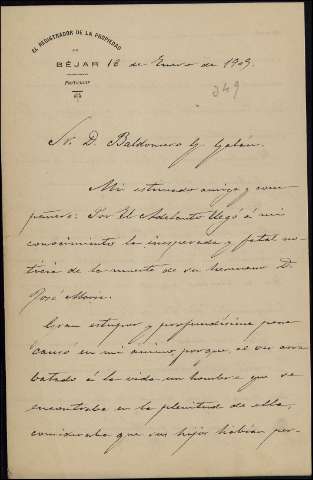 EL REGISTRADOR DE LA PROPIEDAD
DE
BÉJAR 18 de Enero de 1909.
Particular
349
Sr. D. Baldomero G. Galán.
Mi estimado amigo y com-
pañero: Por El Adelanto llegó á mi
conocimiento la inesperada y fatal no-
ticia de la muerte de su hermano D.
José María.
Gran estupor y profundísima pena
causó en mi ánimo, porque, al ver arre-
batado á la vida un hombre que se
encontraba en la plenitud de ella,
consideraba que sus hijos habían per-